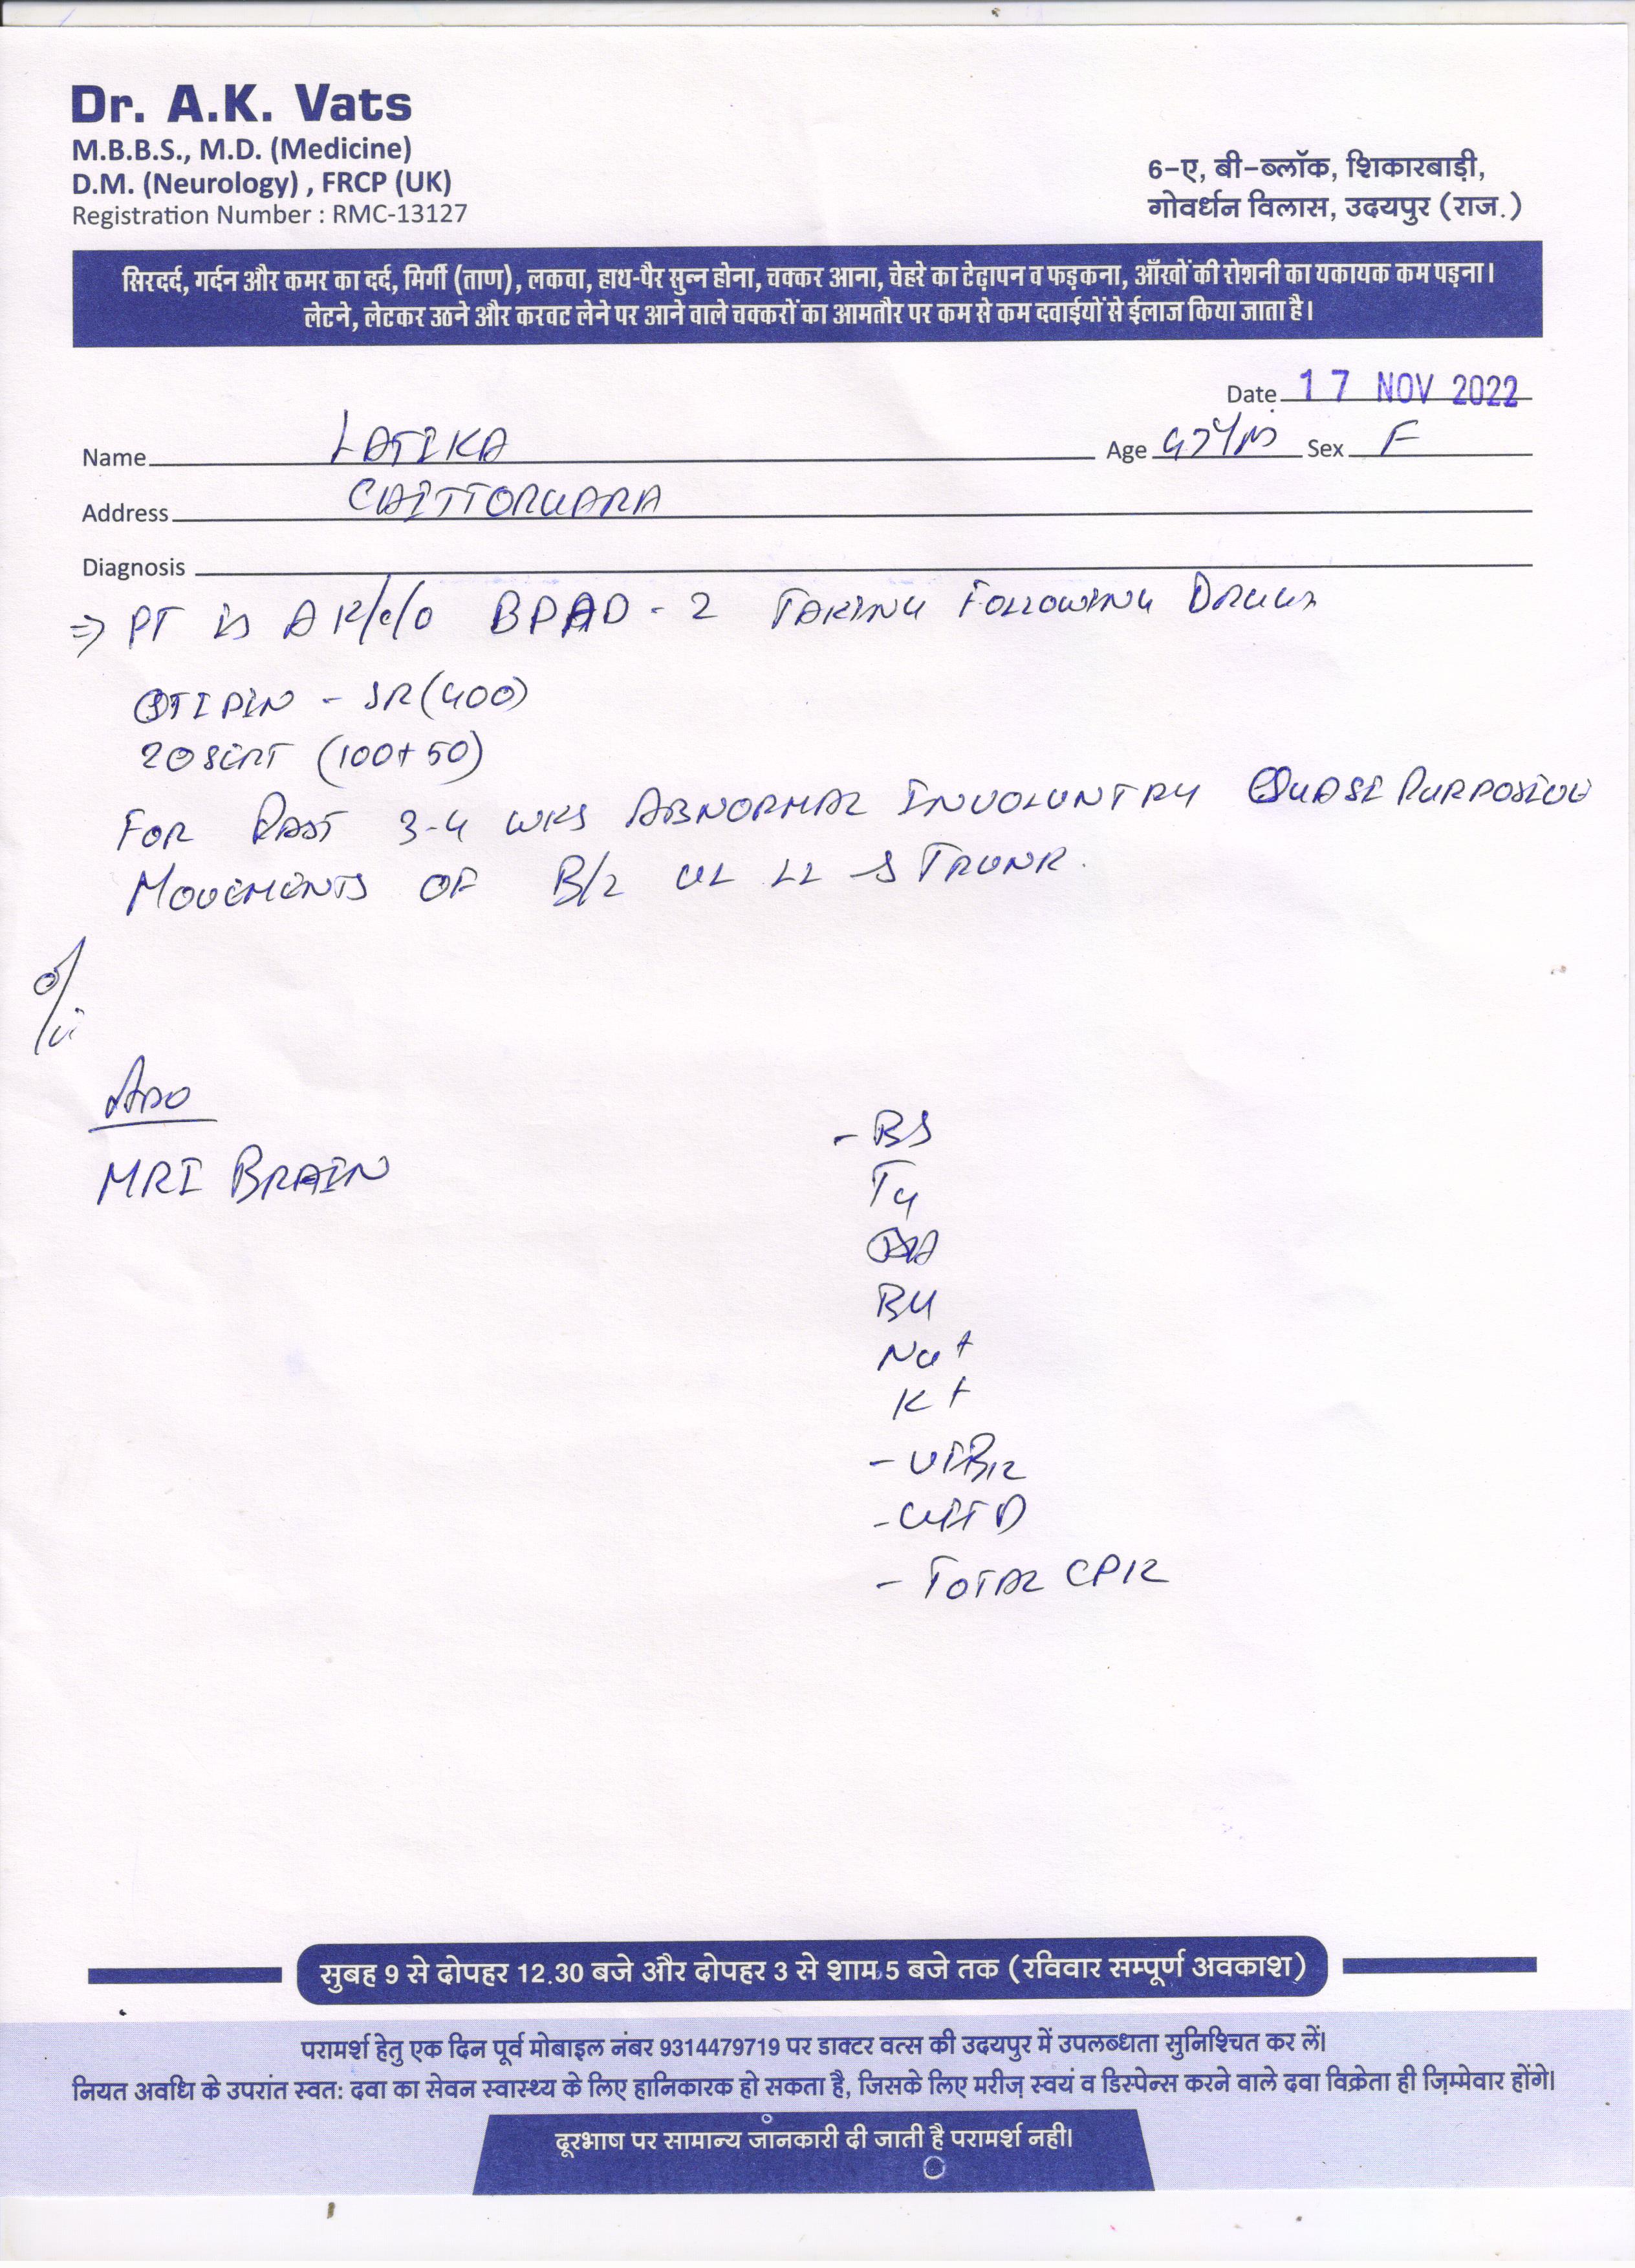 Dr. A.K. Vats
M.B.B.S., M.D. (Medicine)
D.M. (Neurology) , FRCP (UK)
Registration Number : RMC-13127
6-ए, बी-ब्लॉक, शिकारबाड़ी,
गोवर्धन विलास, उदयपुर (राज.)
सिरदर्द, गर्दन और कमर का दर्द, मिर्गी (ताण), लकवा, हाथ-पैर सुन्न होना, चक्कर आना, चेहरे का टेढ़ापन व फड़कना, आँखों की रोशनी का यकायक कम पड़ना।
लेटने, लेटकर उठने और करवट लेने पर आने वाले चक्करों का आमतौर पर कम से कम दवाईयों से ईलाज किया जाता है।
Date 17 NOV 2022
Name LATIKA Age Sex F
Address
Diagnosis
⇒ PT IS A K/c/o BPAD - 2 TAKING FOLLOWING DRUGS
QTIPIN - SR (400)
ZOSERT (100+50)
FOR PAST 3-4 WKS ABNORMAL INVOLUNTRY QUASI PURPOSIVE
MOVEMENTS OF B/L UL LL & TRUNK.
Adv
MRI BRAIN
- BS
BU
Na+
K+
- VITB12
- VIT D
- TOTAL CPK
सुबह 9 से दोपहर 12.30 बजे और दोपहर 3 से शाम 5 बजे तक (रविवार सम्पूर्ण अवकाश)
परामर्श हेतु एक दिन पूर्व मोबाइल नंबर 9314479719 पर डाक्टर वत्स की उदयपुर में उपलब्धता सुनिश्चित कर लें।
नियत अवधि के उपरांत स्वत: दवा का सेवन स्वास्थ्य के लिए हानिकारक हो सकता है, जिसके लिए मरीज़ स्वयं व डिस्पेन्स करने वाले दवा विक्रेता ही ज़िम्मेवार होंगे।
दूरभाष पर सामान्य जानकारी दी जाती है परामर्श नही।